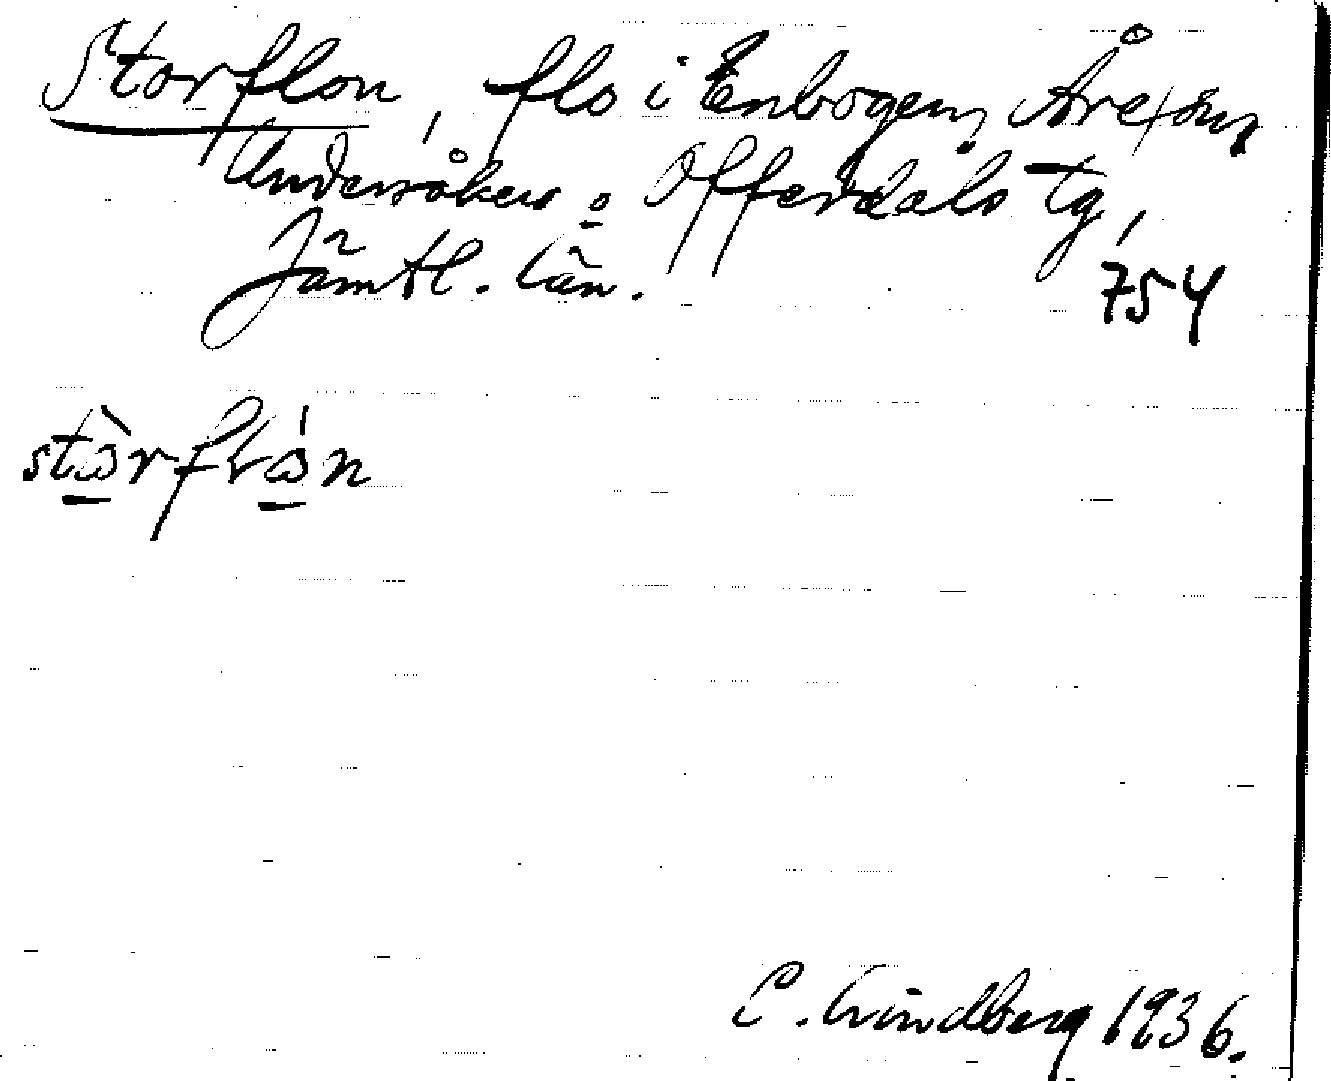 Storflon, flo i Enbogen, Åre sn,
Undersåkers o Offerdals tg,
Jämtl. län. 754
stòrflón
C. Lindberg 1936.